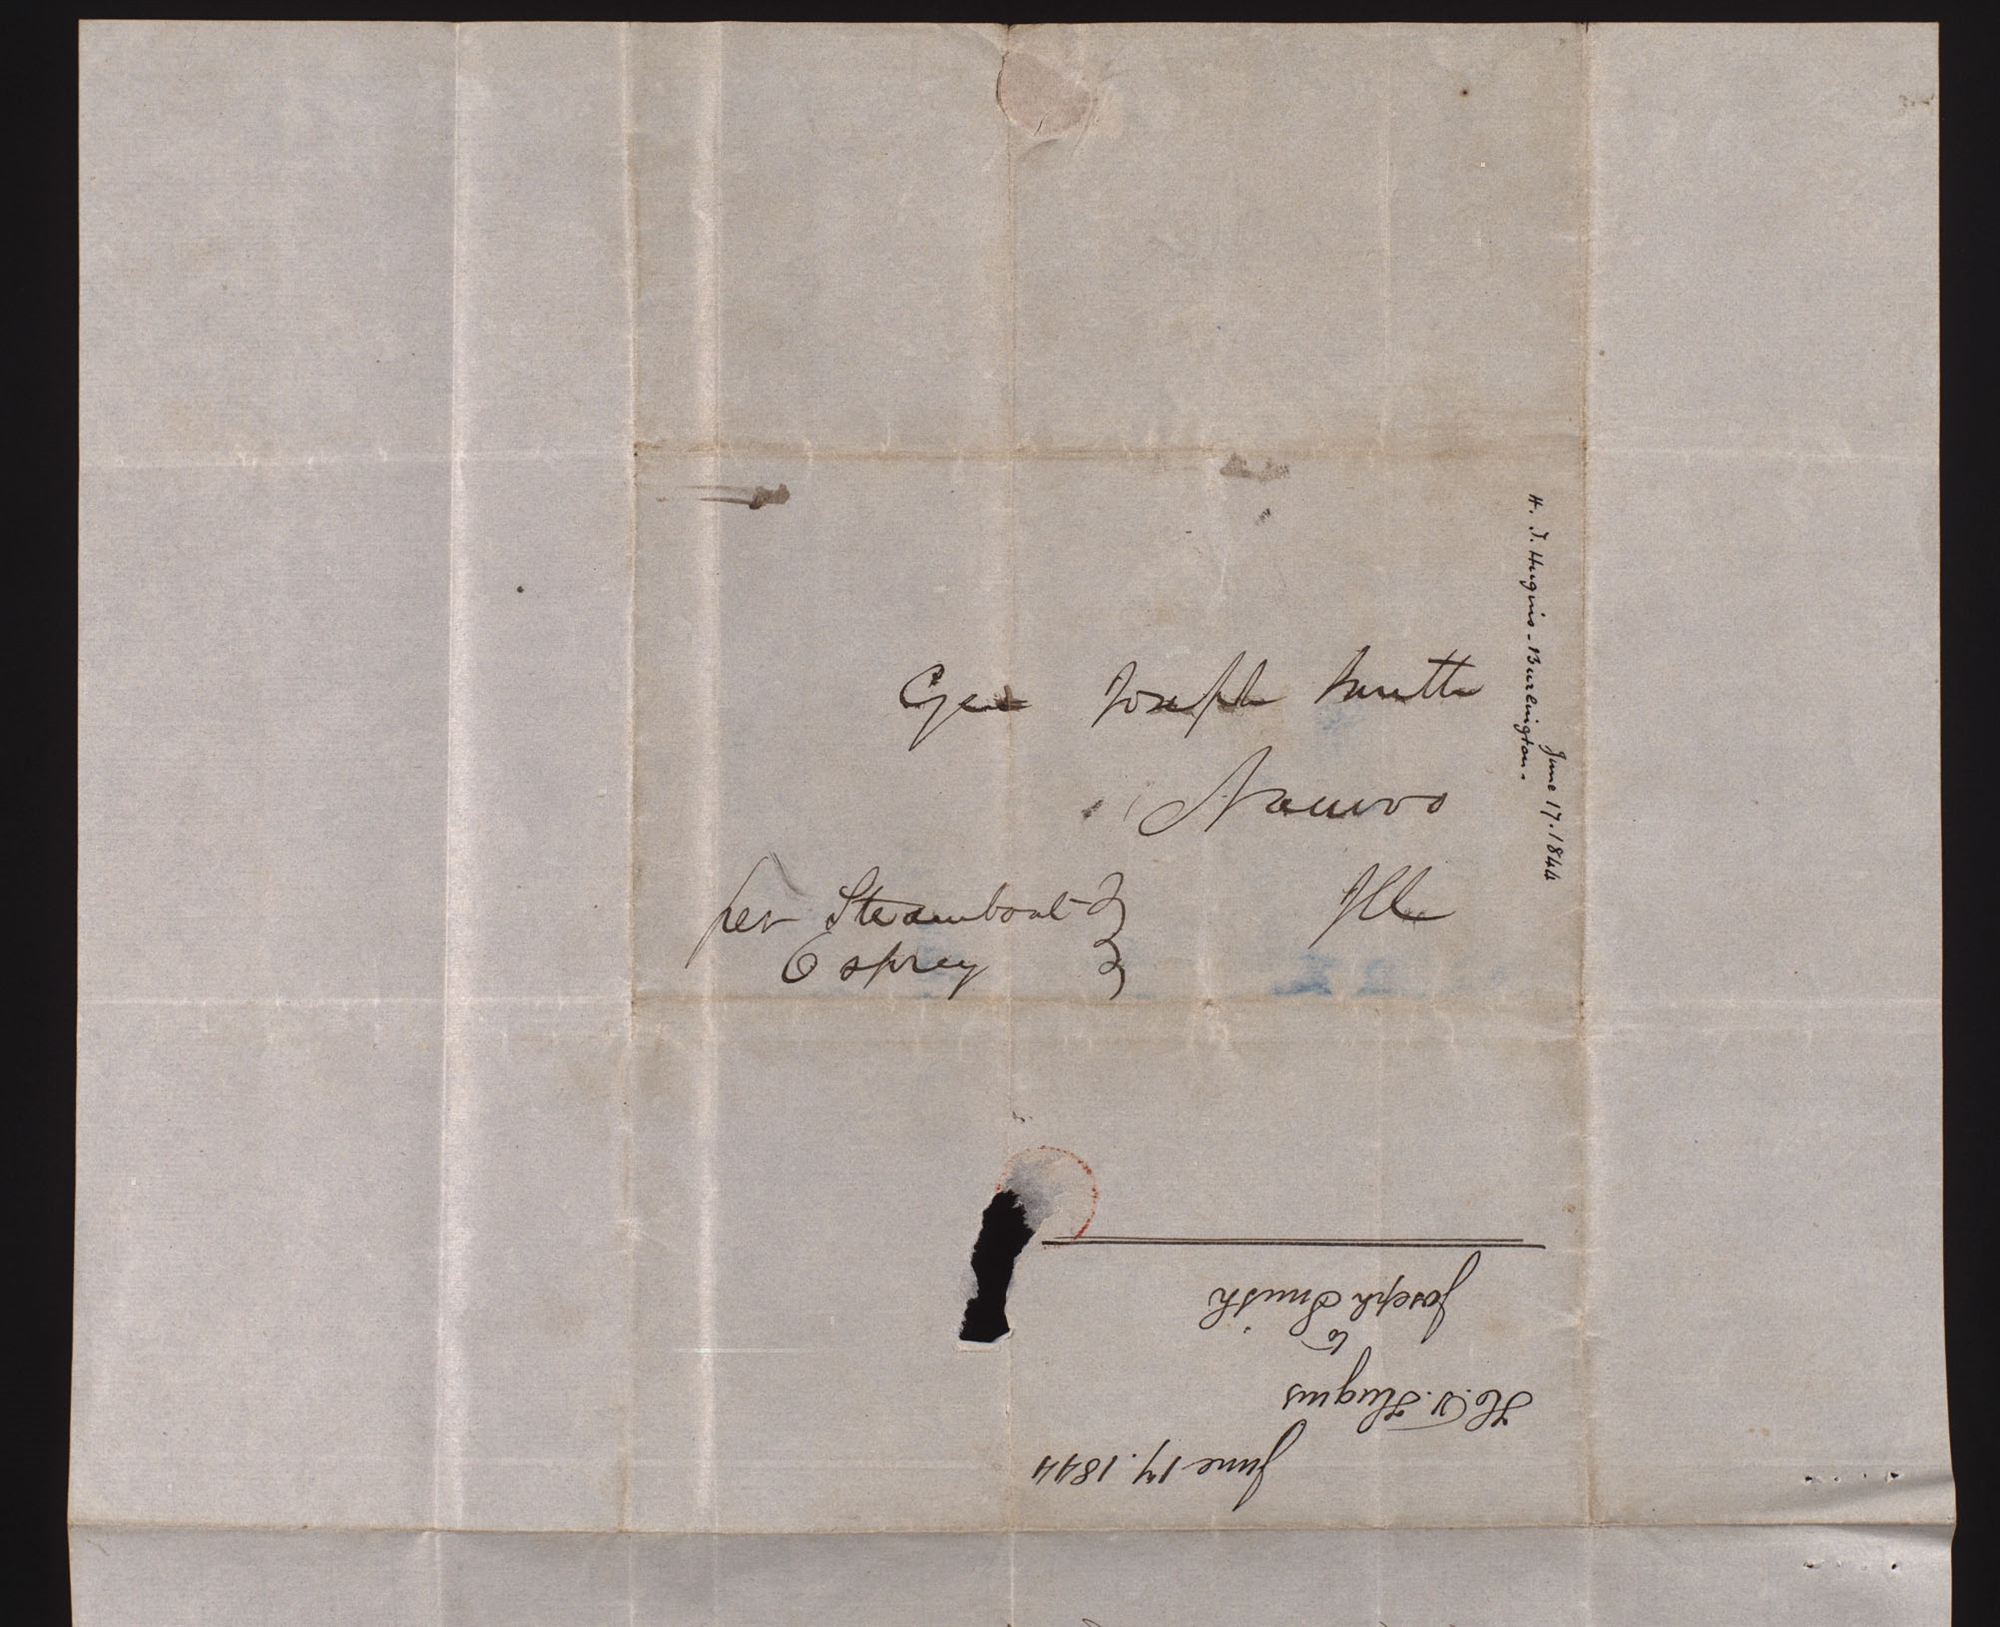 Gen Joseph Smith
Nauvoo
Ills
per Steamboat
Osprey
H. T. Hugins - Burlington.
June 17. 1844
June 17. 1844
H. T. Hugins
to
Joseph Smith